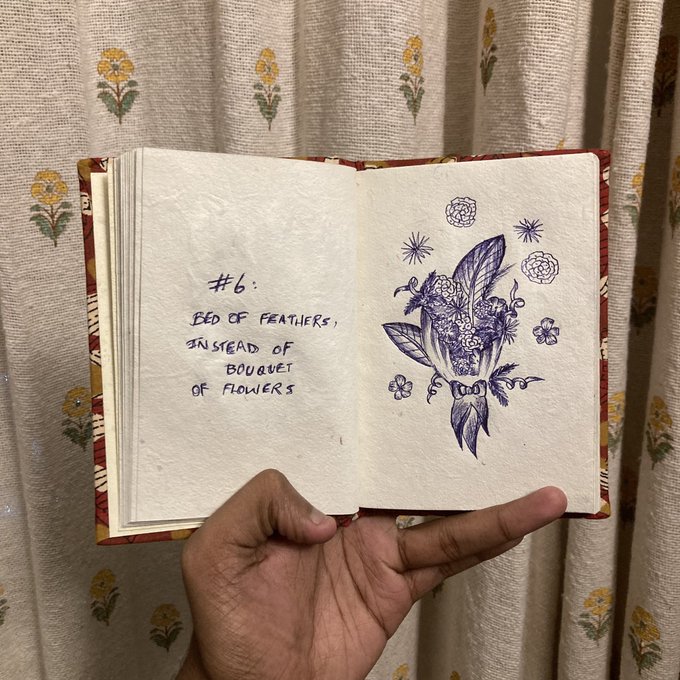 #6:
BED OF FEATHERS,
INSTEAD OF
BOUQUET
OF FLOWERS